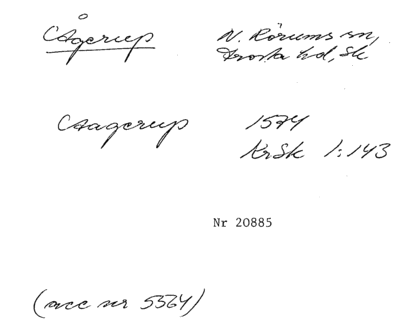 Ågerup N. Rörums sn,
Frosta hd, Sk
Aagerup 1574
KrSk 1:143
Nr 20885
(acc nr 5564)